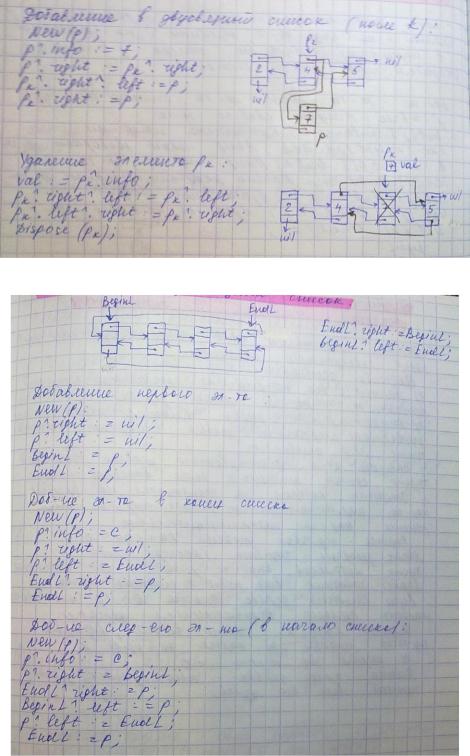 Добавление в двусвязный список (после k):
New(p);
p^.info := 7;
p^.right := pk^.right;
pk^.right^.left := p;
pk^.right := p;
pk
2 4 5 nil
nil
7
p
Удаление элемента pk:
val := pk^.info;
pk^.right^.left := pk^.left;
pk^.left^.right := pk^.right;
Dispose(pk);
pk
7 val
2 4 5 nil
nil
список
BeginL EndL
EndL^.right := BeginL;
BeginL^.left := EndL;
Добавление первого эл-та:
New(p);
p^.right := nil;
p^.left := nil;
BeginL := p;
EndL := p;
Доб-ие эл-та в конец списка
New(p);
p^.info := C;
p^.right := nil;
p^.left := EndL;
EndL^.right := p;
EndL := p;
Доб-ие след-его эл-та (в начало списка):
New(p);
p^.info := C;
p^.right := BeginL;
EndL^.right := p;
BeginL^.left := p;
p^.left := EndL;
EndL := p;